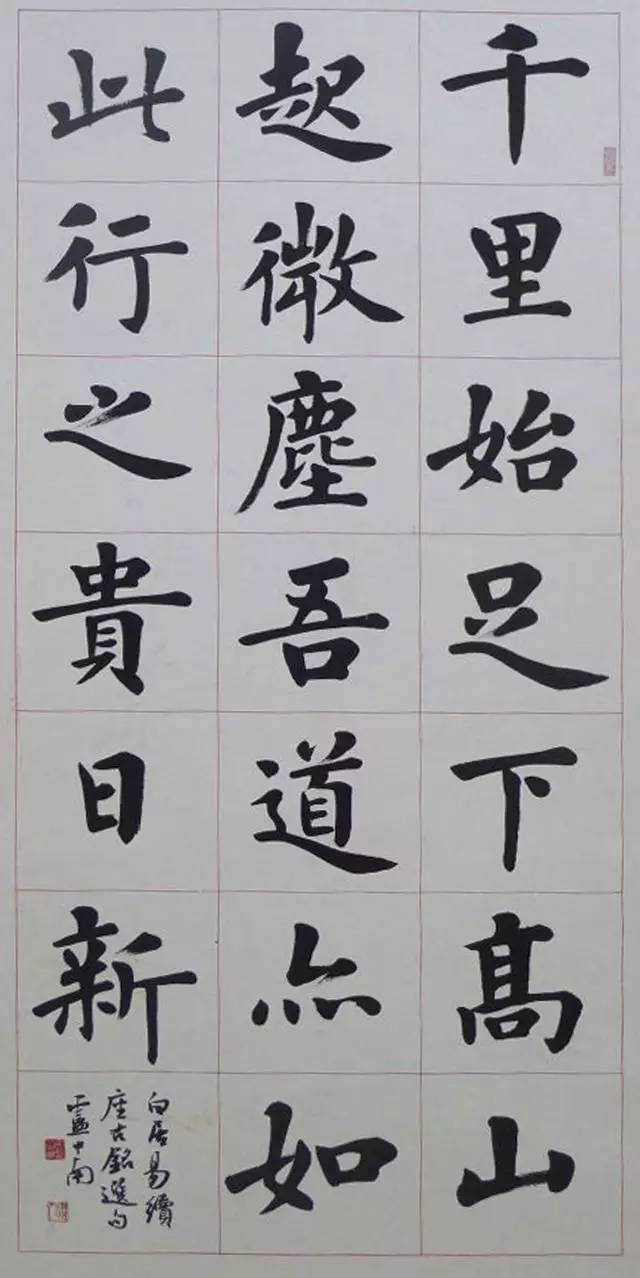 千里始足下高山
起微塵吾道亦如
此行之貴日新
白居易續
座右銘選句
盧中南